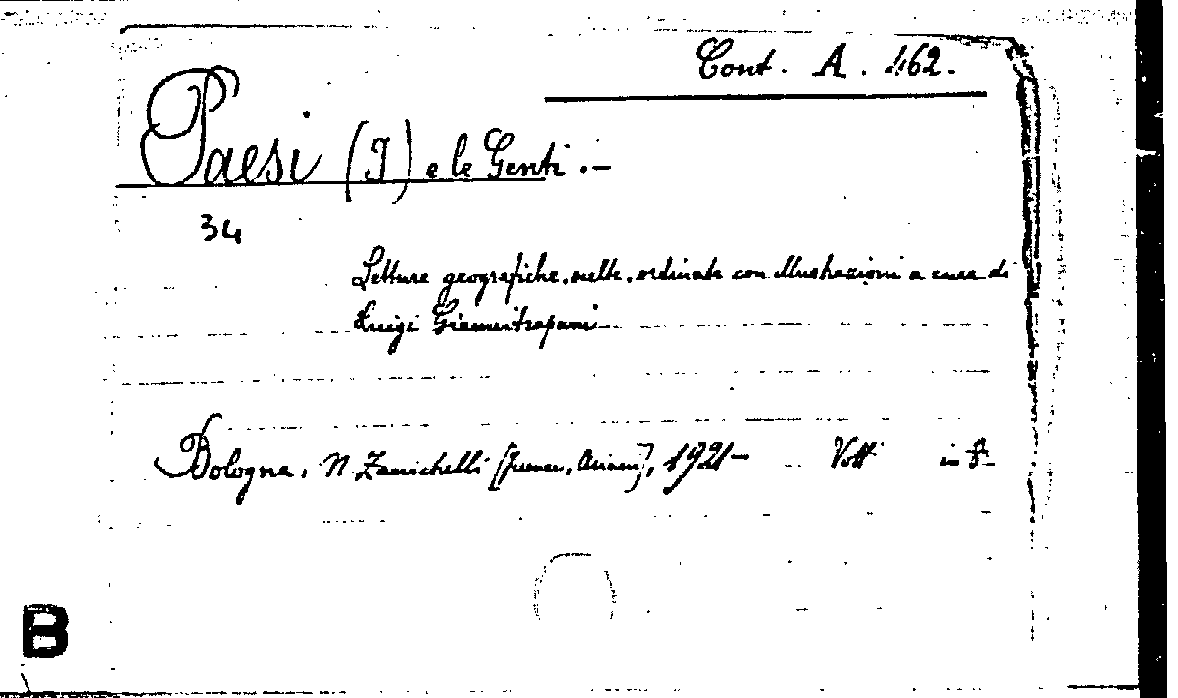 Cont. A. 462.
Paesi (I) e le Genti.-
34
Letture geografiche, scelte, ordinate con illustrazioni a cura di
Luigi Giannitrapani
Bologna, N. Zanichelli [Firenze, Ariani], 1921- Voll. in 8°
B